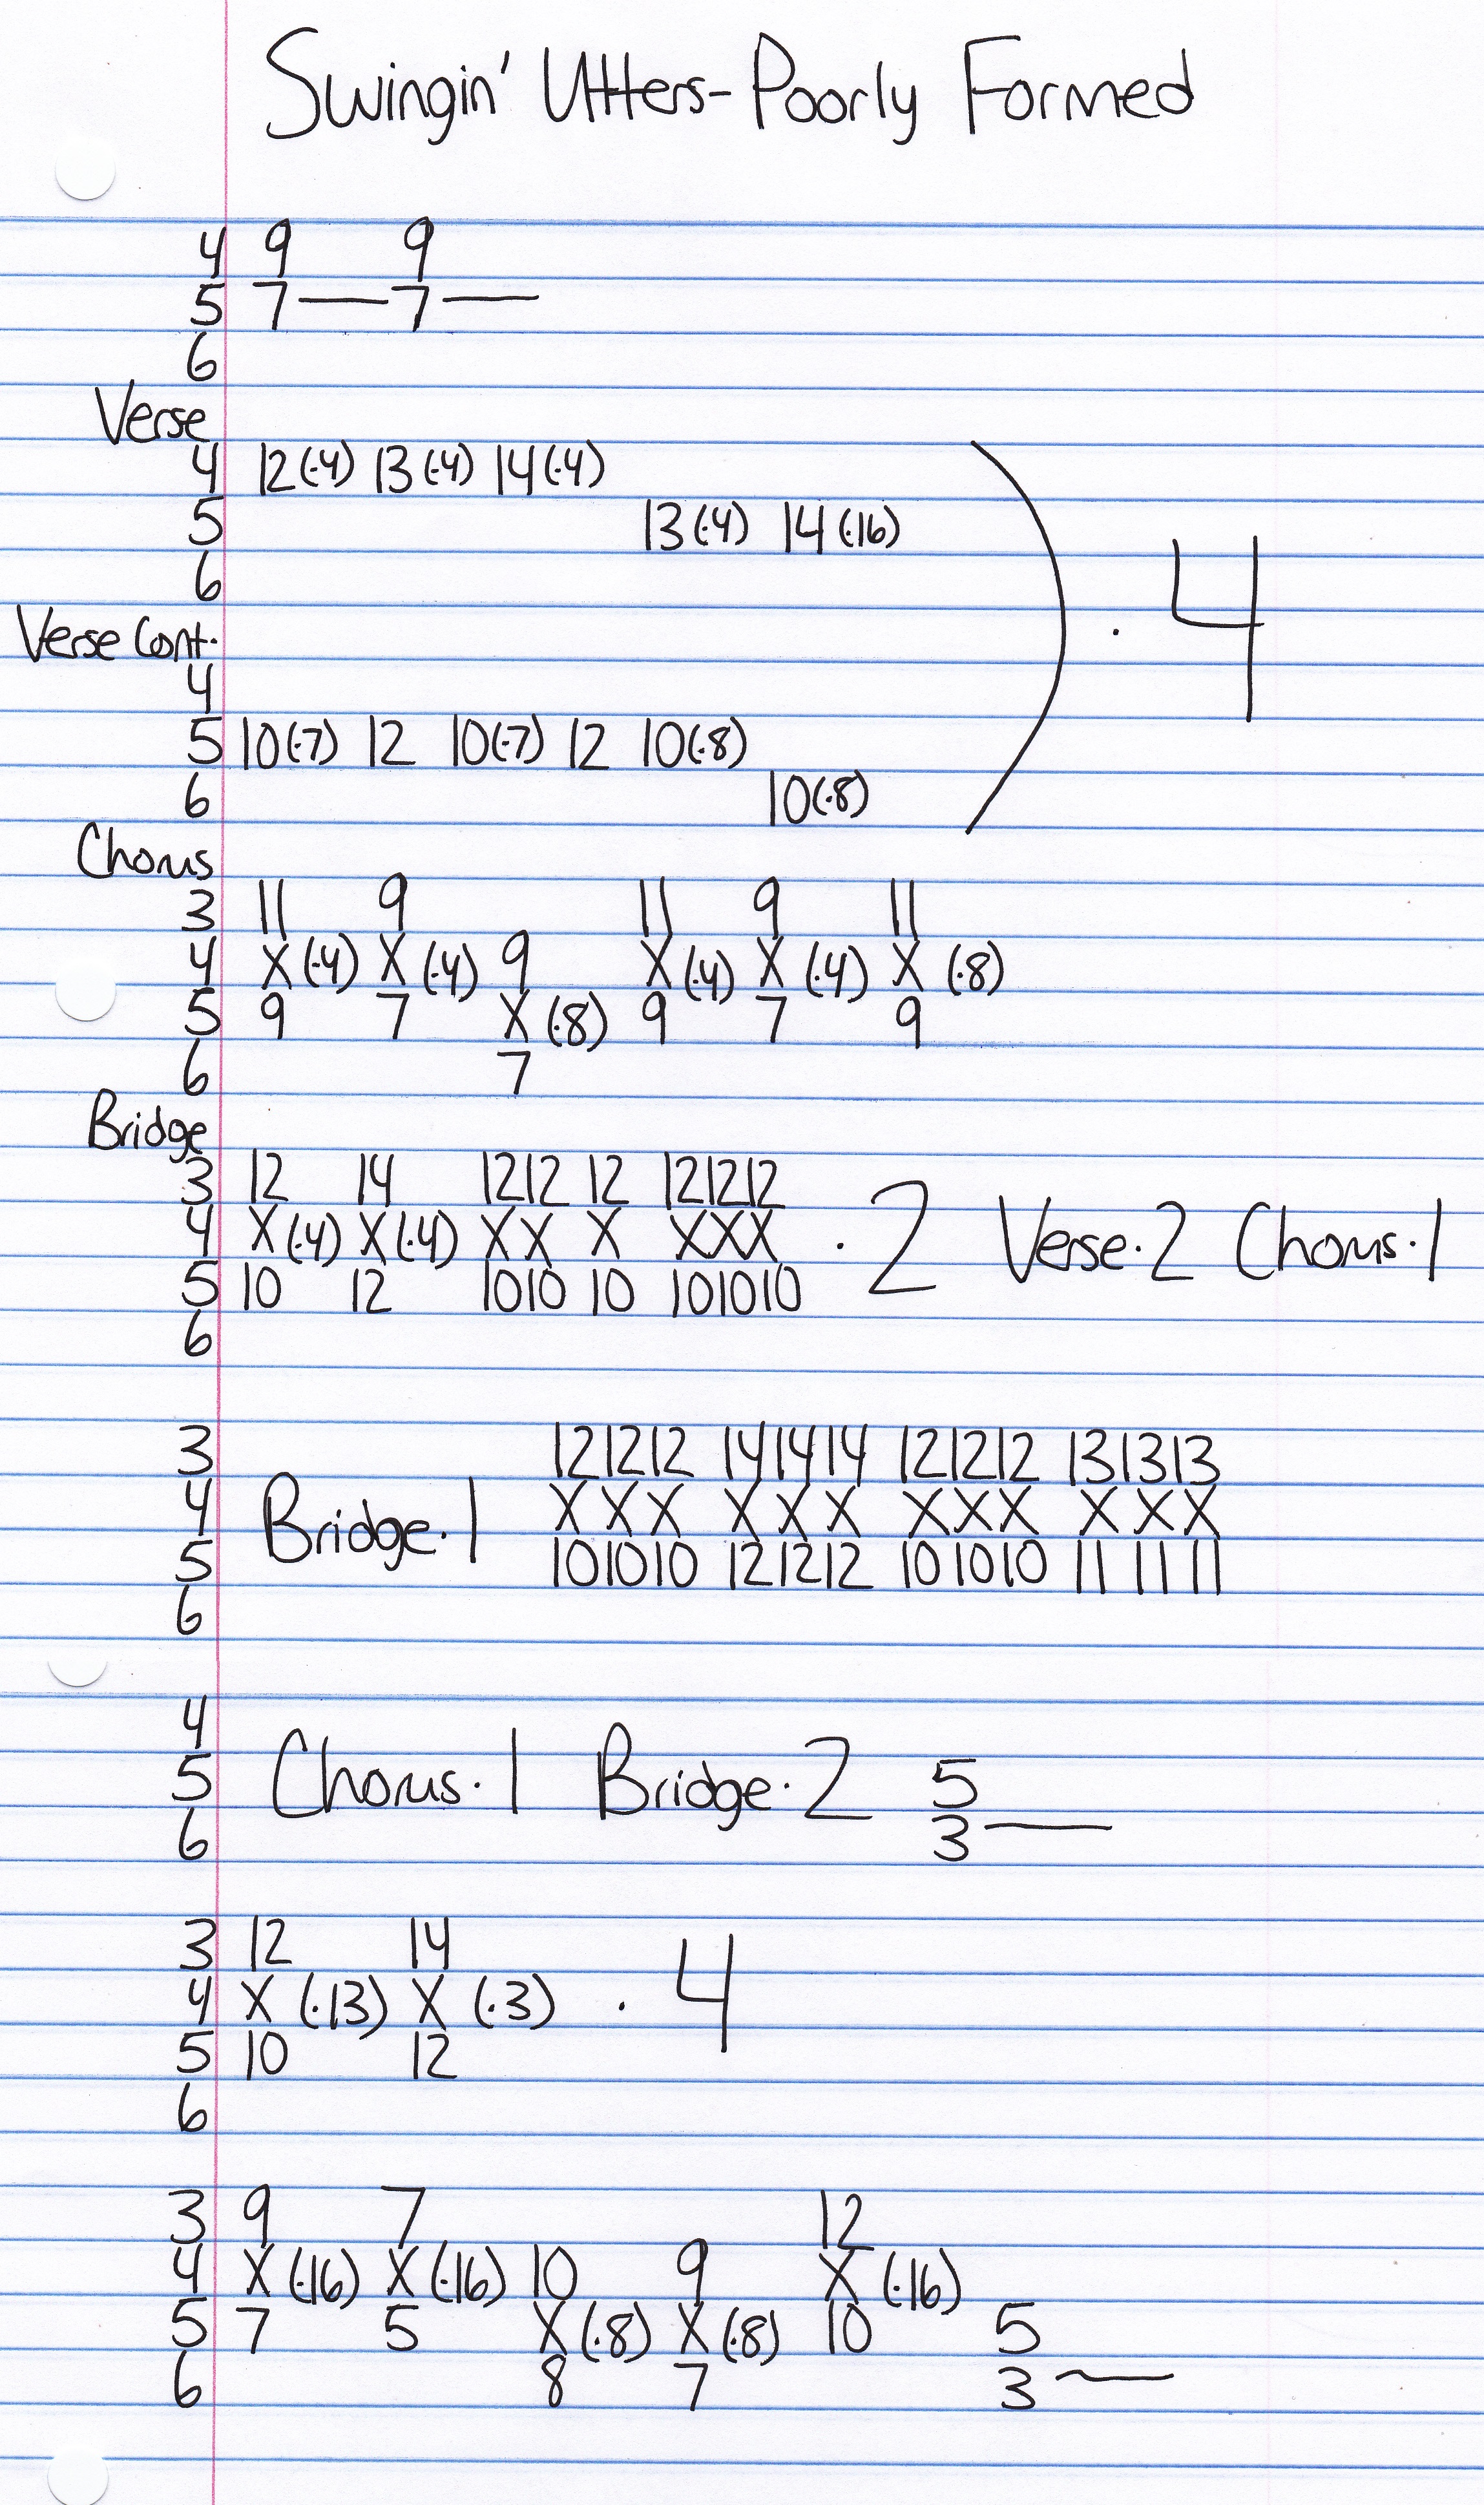 Swingin' Utters-Poorly Formed
4 9 9
5 7 — 7 —
6
Verse
4 12(·4) 13(·4) 14(·4)
5 13(·4) 14(·16)
6
) · 4
Verse Cont.
4
5 10(·7) 12 10(·7) 12 10(·8)
6 10(·8)
Chorus
3 11 9 11 9 11
4 X (·4) X (·4) 9 X (·4) X (·4) X (·8)
5 9 7 X (·8) 9 7 9
6 7
Bridge
3 12 14 12 12 12 12 12 12
4 X (·4) X (·4) X X X X X X · 2 Verse·2 Chorus·1
5 10 12 10 10 10 10 10 10
6
3 12 12 12 14 14 14 12 12 12 13 13 13
4 Bridge·1 X X X X X X X X X X X X
5 10 10 10 12 12 12 10 10 10 11 11 11
6
4
5 Chorus·1 Bridge·2 5
6 3 —
3 12 14
4 X (·13) X (·3) · 4
5 10 12
6
3 9 7 12
4 X (·16) X (·16) 10 9 X (·16)
5 7 5 X (·8) X (·8) 10 5
6 8 7 3 —